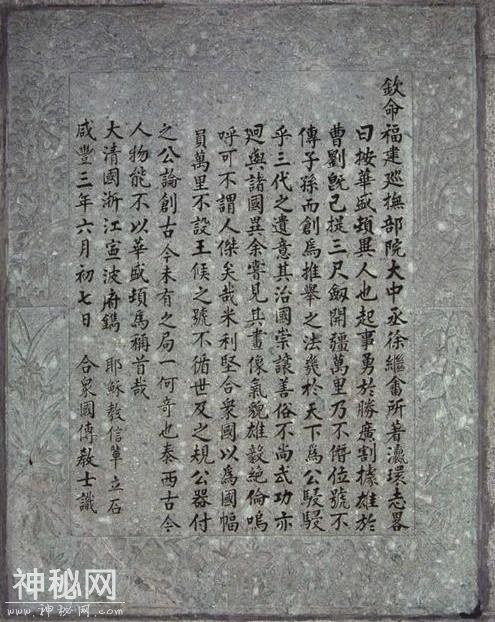 欽命福建廵撫部院大中丞徐繼畬所著瀛環志畧
曰按華盛頓異人也起事勇於勝廣割據雄於
曹劉旣已提三尺劒開疆萬里乃不僭位號不
傳子孫而創爲推舉之法幾於天下爲公駸駸
乎三代之遺意其治國崇讓善俗不尚武功亦
廻與諸國異余嘗見其畫像氣貌雄毅絕倫嗚
呼可不謂人傑矣哉米利堅合衆國以爲國幅
員萬里不設王侯之號不循世及之規公器付
之公論創古今未有之局一何奇也泰西古今
人物能不以華盛頓爲稱首哉
大清國浙江寧波府鐫 耶穌教信輩立石
咸豐三年六月初七日 合衆國傳教士識
神秘网
www.神秘网.com